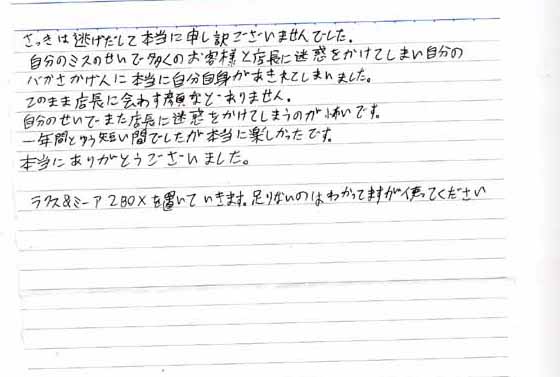 さっきは逃げだして本当に申し訳ございませんでした。
自分のミスのせいで多くのお客様と店長に迷惑をかけてしまい自分の
バカさかげんに本当に自分自身があきれてしまいました。
このまま店長に会わす顔などありません。
自分のせいでまた店長に迷惑をかけてしまうのが怖いです。
一年間という短い間でしたが本当に楽しかったです。
本当にありがとうございました。
ラクス&ミーア2BOXを置いていきます。足りないのはわかってますが使ってください